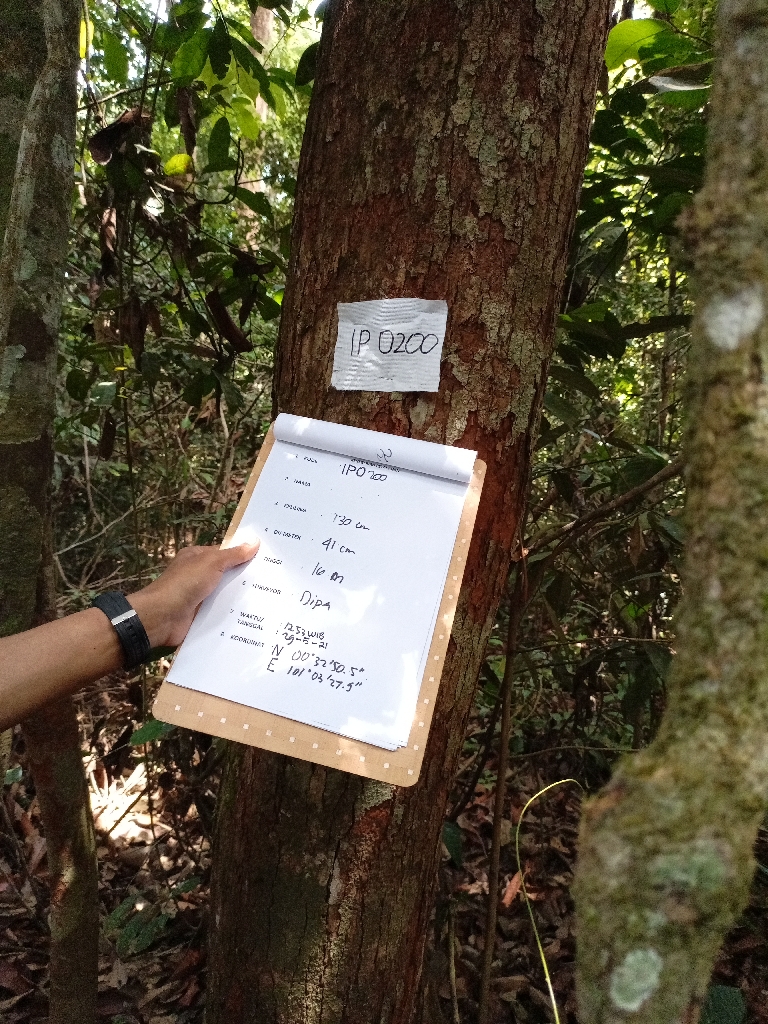 IP 0200
1. KODE : IP0200
2. NAMA : . .
3. KELILING : 130 cm
4. DIAMETER : 41 cm
TINGGI : 16 m
6. SURVEYOR : Dipa
7. WAKTU/ : 1253 WIB
TANGGAL : 29-5-21
8. KOORDINAT N 00°32'50.5"
E 101°03'27.5"